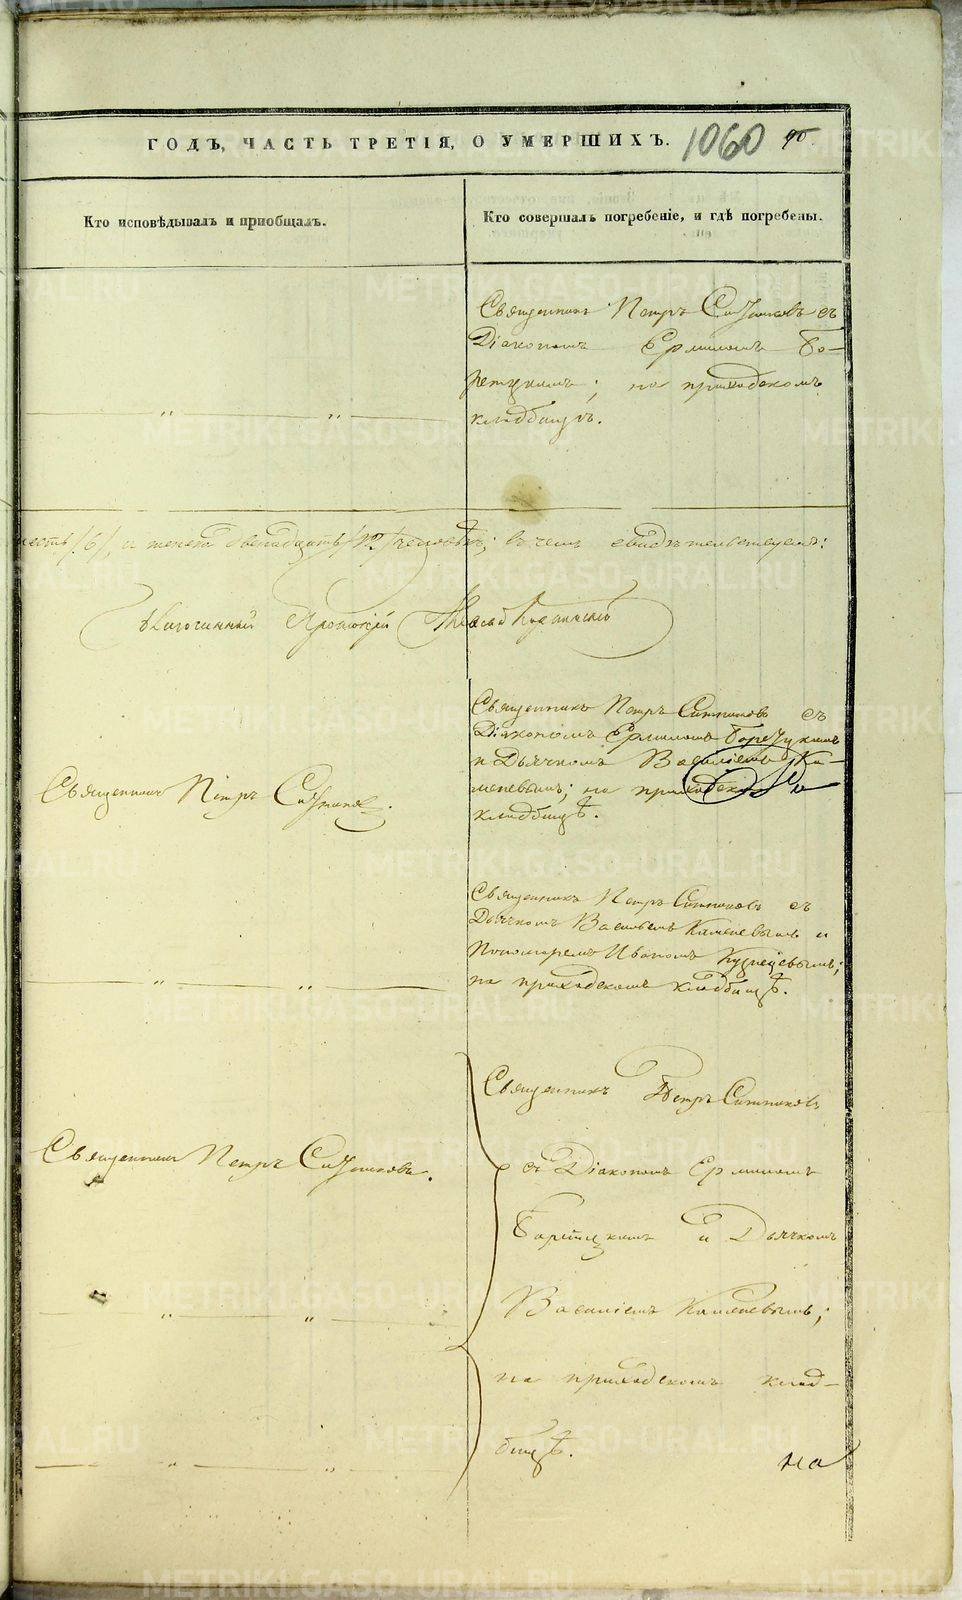 ГОДЪ, ЧАСТЬ ТРЕТІЯ, О УМЕРШИХЪ. 1060
Кто исповѣдывалъ и пріобщалъ.
Кто совершалъ погребеніе, и гдѣ погребены.
Священникъ Петръ Ситниковъ съ
Діакономъ Ермиломъ Бо-
рецкимъ; на приходскомъ
кладбищѣ.
„ „
/6/, и женск. двѣнадцать /12/ человѣкъ; въ чемъ свидѣтельствуемъ:
Благочинный Протоіерей
Священникъ Петръ Ситниковъ съ
Діакономъ Ермиломъ Борецкимъ
и Дьячкомъ Василіемъ Ка-
меневымъ; на приходском
кладбищѣ.
Священникъ Петръ Ситниковъ.
Священникъ Петръ Ситниковъ съ
Дьячкомъ Василіемъ Каменевымъ и
Пономаремъ Иваномъ Кузнецовымъ;
на приходскомъ кладбищѣ.
„ „
Священникъ Петръ Ситниковъ
съ Діакономъ Ермиломъ
Борецкимъ и Дьячкомъ
Василіемъ Каменевымъ;
на приходскомъ клад-
бищѣ.
Священникъ Петръ Ситниковъ.
„ „
„ „
на
METRIKI.GASO-URAL.RU